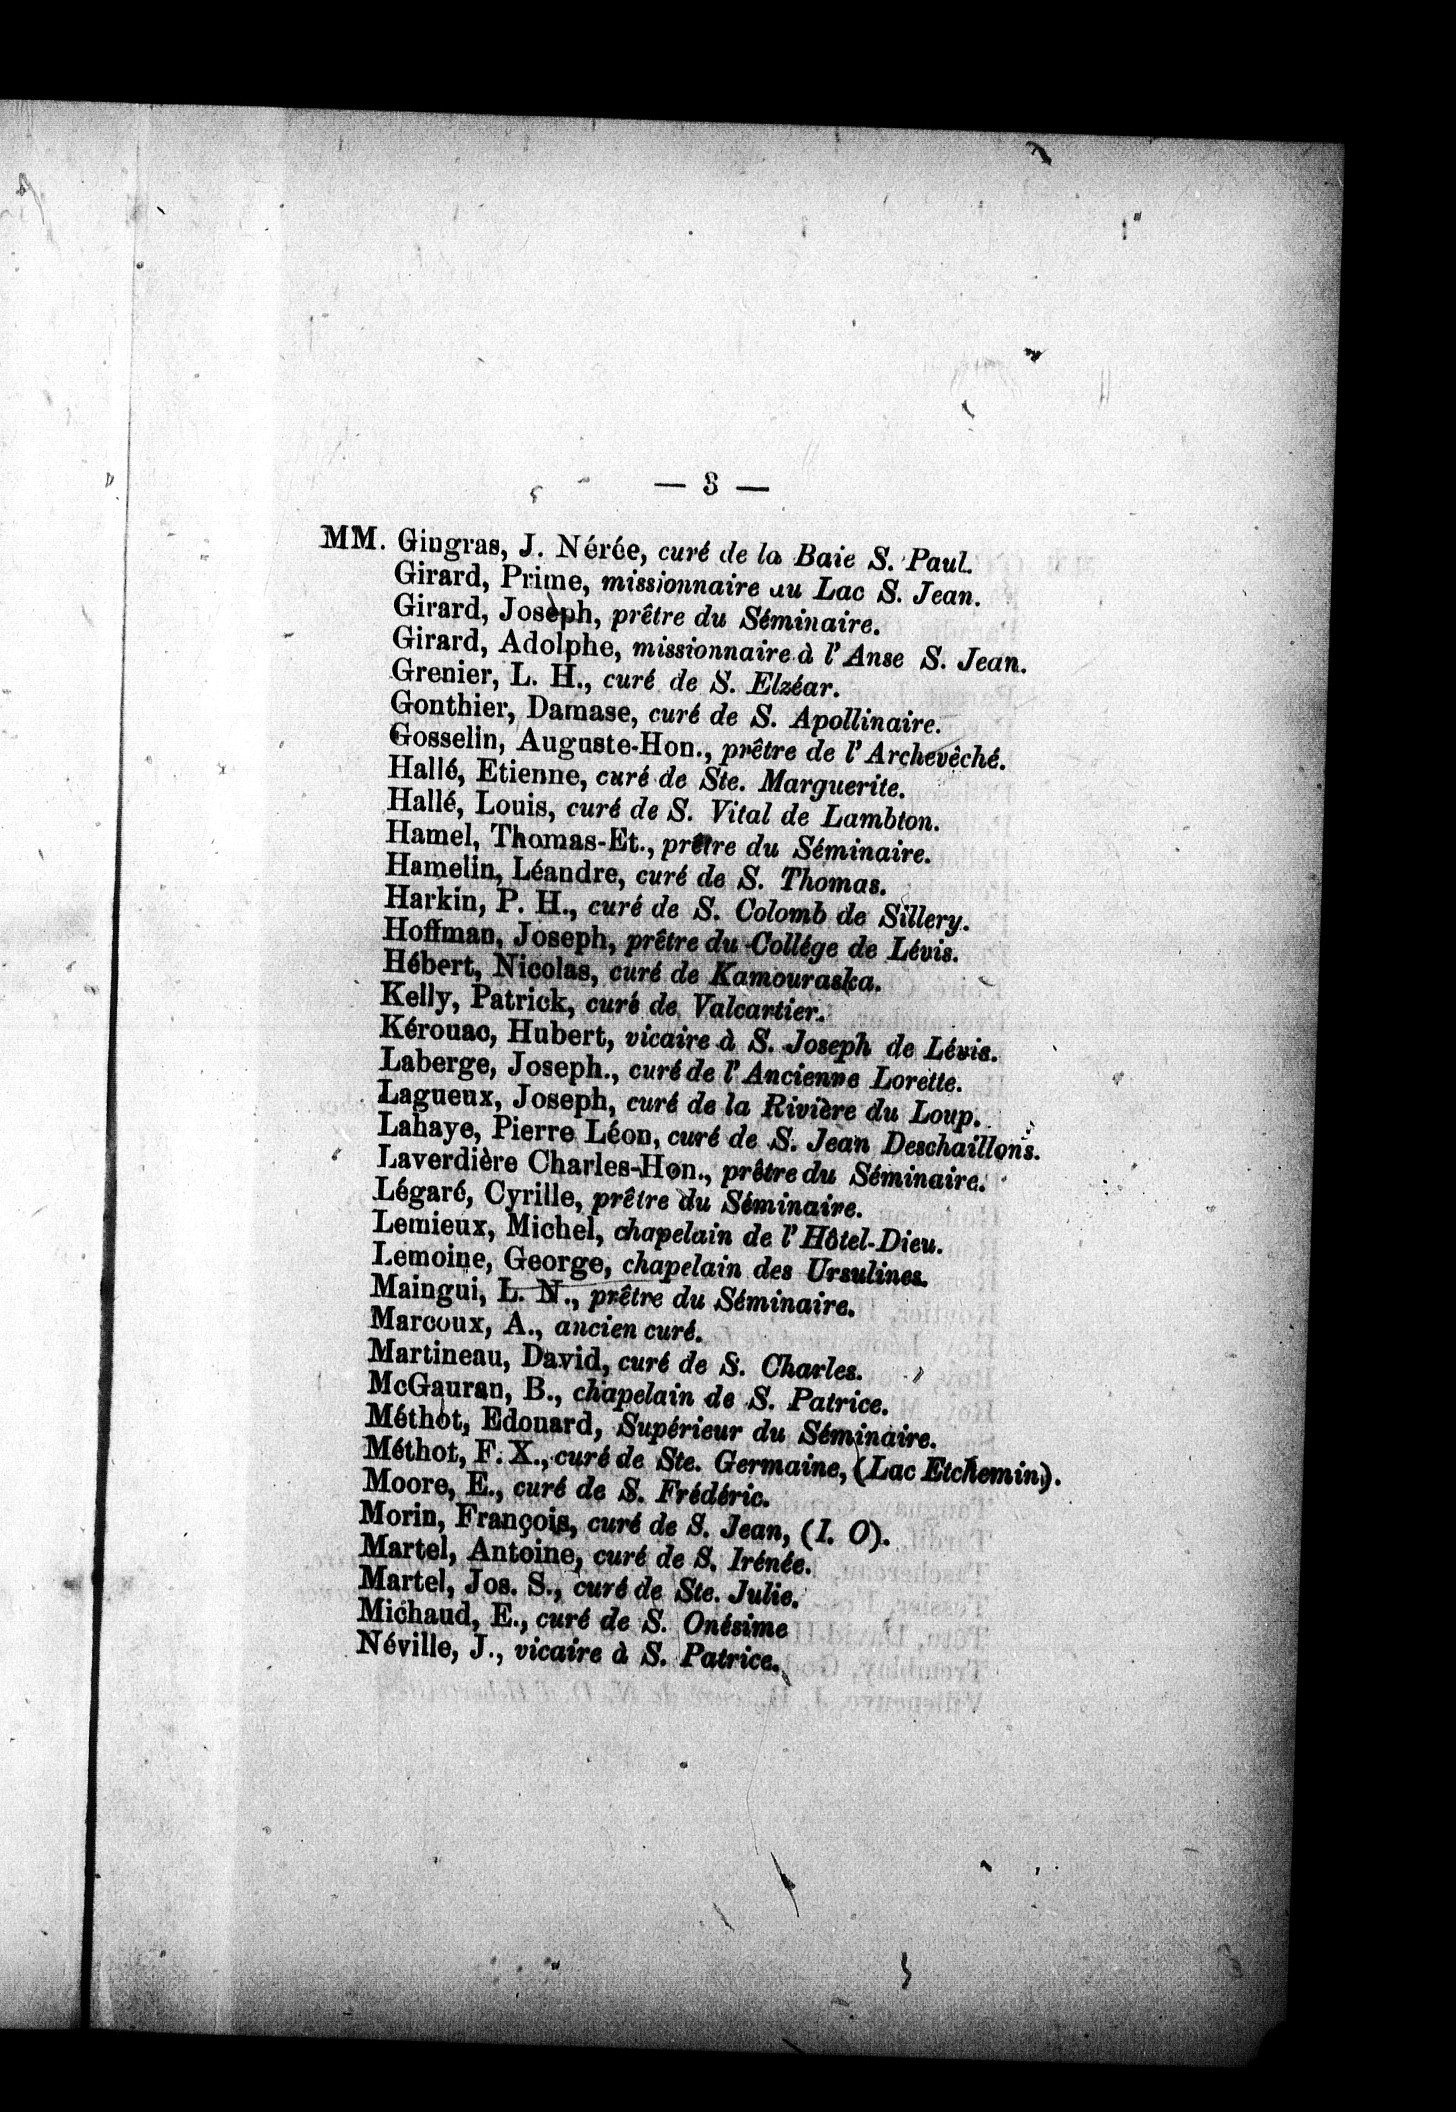 — 3 —
MM. Gingras, J. Nérée, curé de la Baie S. Paul.
Girard, Prime, missionnaire au Lac S. Jean.
Girard, Joseph, prêtre du Séminaire.
Girard, Adolphe, missionnaire à l'Anse S. Jean.
Grenier, L. H., curé de S. Elzéar.
Gonthier, Damase, curé de S. Apollinaire.
Gosselin, Auguste-Hon., prêtre de l'Archevêché.
Hallé, Etienne, curé de Ste. Marguerite.
Hallé, Louis, curé de S. Vital de Lambton.
Hamel, Thomas-Et., prêtre du Séminaire.
Hamelin, Léandre, curé de S. Thomas.
Harkin, P. H., curé de S. Colomb de Sillery.
Hoffman, Joseph, prêtre du Collége de Lévis.
Hébert, Nicolas, curé de Kamouraska.
Kelly, Patrick, curé de Valcartier.
Kérouac, Hubert, vicaire à S. Joseph de Lévis.
Laberge, Joseph., curé de l'Ancienne Lorette.
Lagueux, Joseph, curé de la Rivière du Loup.
Lahaye, Pierre Léon, curé de S. Jean Deschaillons.
Laverdière Charles-Hon., prêtre du Séminaire.
Légaré, Cyrille, prêtre du Séminaire.
Lemieux, Michel, chapelain de l'Hôtel-Dieu.
Lemoine, George, chapelain des Ursulines.
Maingui, L. N., prêtre du Séminaire.
Marcoux, A., ancien curé.
Martineau, David, curé de S. Charles.
McGauran, B., chapelain de S. Patrice.
Méthot, Edouard, Supérieur du Séminaire.
Méthot, F. X., curé de Ste. Germaine, (Lac Etchemin).
Moore, E., curé de S. Frédéric.
Morin, François, curé de S. Jean, (I. O).
Martel, Antoine, curé de S. Irénée.
Martel, Jos. S., curé de Ste. Julie.
Michaud, E., curé de S. Onésime
Néville, J., vicaire à S. Patrice.